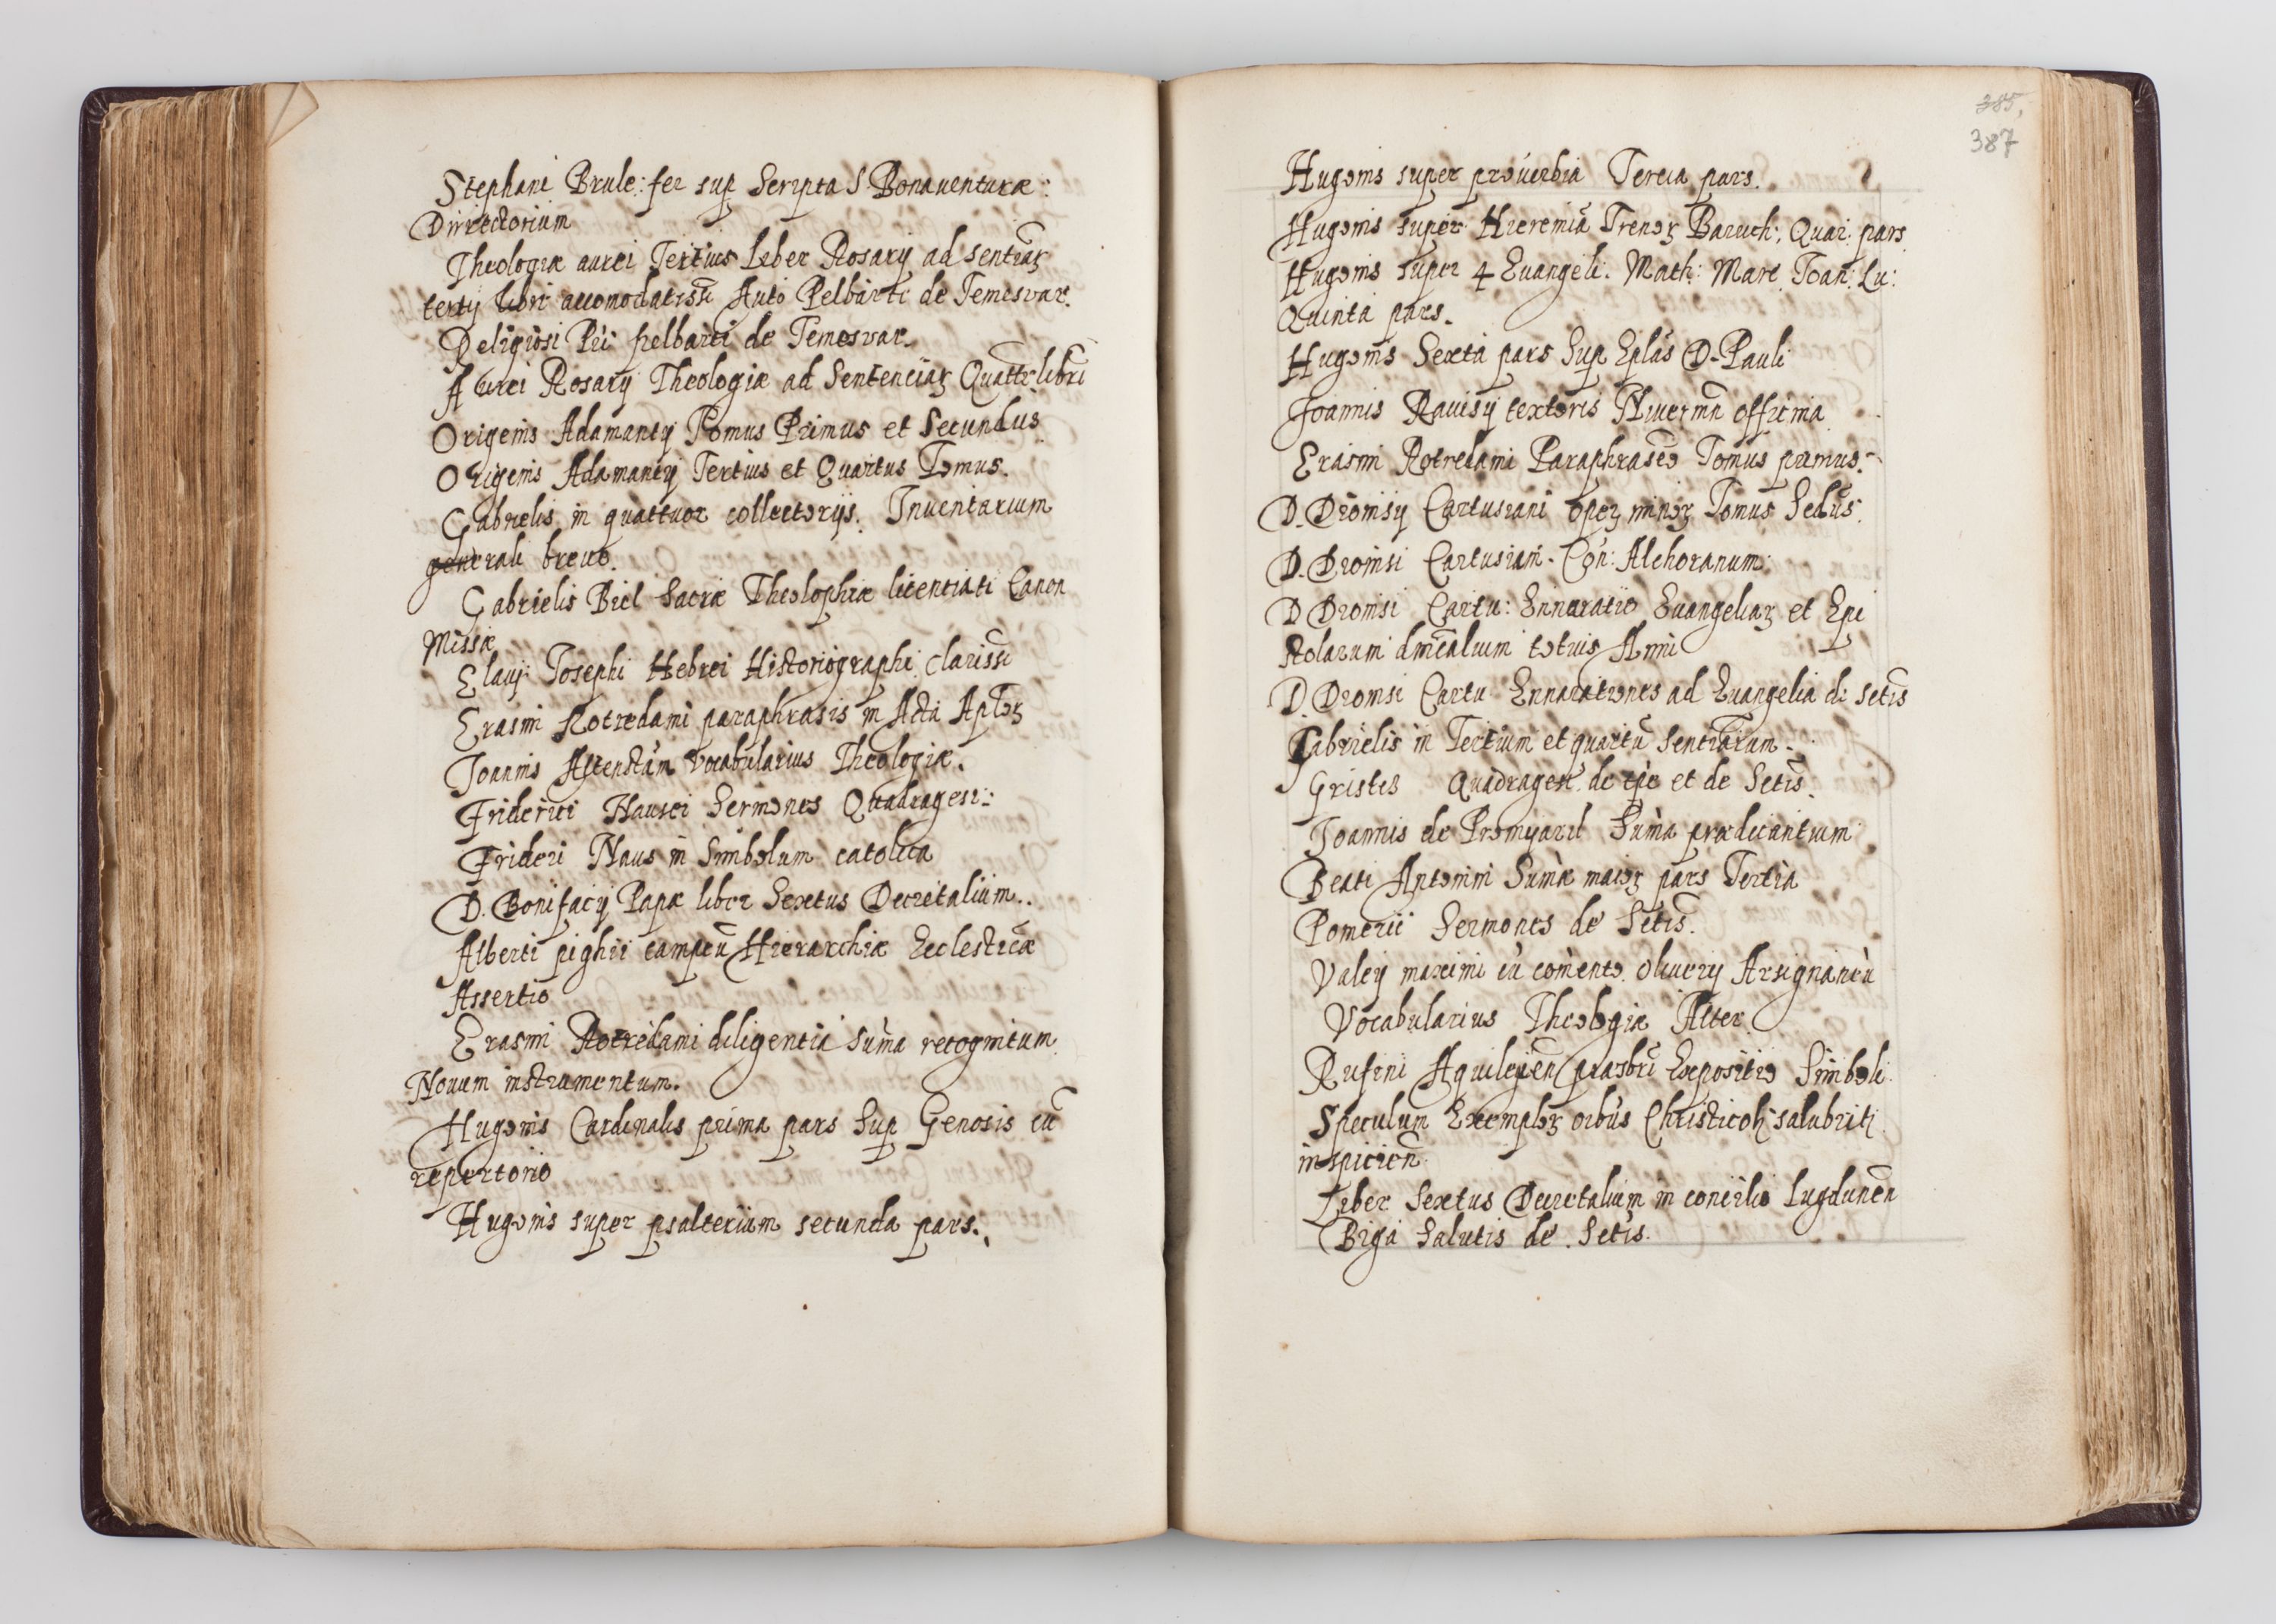 Stephani Brule: fer sup Scripta S. Bonauenturæ:
Dirrectorium
Theologiæ aurei Tertius Liber Rosarij ad sentẽiaꝝ
tertij libri accomodatissi Auto Pelbarti de Temesvar.
Religiosi Pri pelbarti de Temesvar.
Aurei Rosarij Theologiæ ad Sentenciaꝝ Quatto libri
Origenis Adamantij Tomus Primus et Secundus
Origenis Adamantij Tertius et Quartus Tomus.
Gabrielis in quattuor collectorijs. Inuentarium
generali breue.
Gabrielis Biel Sacræ Theolophiæ licentiati Canon
Missæ
Flauij Josephi Hebrei Historiographi clarissi
Erasmi Rotredami paraphrasis in Acta Aptoꝝ
Joannis Altenstam Vocabularius Theologiæ.
Friderici Nausei Sermones Quadragesi:
Frideri Naus in Simbolum catolica
D. Bonifacij Papæ liber Sextus Decretalium..
Alberti pighii campeñ Hierarchiæ Ecclesticæ
Assertio
Erasmi Rotredami diligentia suma recognitum
Nouum instrumentum.
Hugonis Cardinalis prima pars Sup Genosis cũ
repertorio
Hugonis super psalterium secunda pars.
385,
387
Hugonis super prouerbia Tercia pars.
Hugonis super Hieremiã Trenoꝝ Baruch:, Quar: pars
Hugonis super 4 Euangeli. Math: Marc. Joan: Lu:
Quinta pars.
Hugonis Sexta pars Sup Eplas D. Pauli
Joannis Rauisij textoris Niuermñ officina
Erasmi Rotredami Paraphraseo Tomus primus.
D. Dionisij Cartusiani opeꝝ minoꝝ Tomus Sedus.
D. Dionisi Cartusiani. Con: Alchoranum:
D Dionisi Cartu: Ennaratiio Euangeliaꝝ et Epi
stolarum dnicalium totuis Anni
D. Dionisi Cartu Ennarationes ad Euangelia de sctis
Gabrielis in Tertium et quartũ sentiarum.
Gristes Quadragesi. de tpe et de Sctis.
Joannis de Promyard Suma prædicantium
Beati Antonini Sumæ maioꝝ pars Tertia
Pomerii Sermones de Sctis.
Valeij maximi cũ comento oliuerij Arsignancũ
Vocabularius Theologiæ Alter
Rufini Aquileyeñ prasbri Expositio Simboli.
Speculum Exemploꝝ oibus Christicoli salubriti
inspicieñ.
Liber Sextus Decretalium in concilio Lugduneñ
Biga Salutis de Sctis.